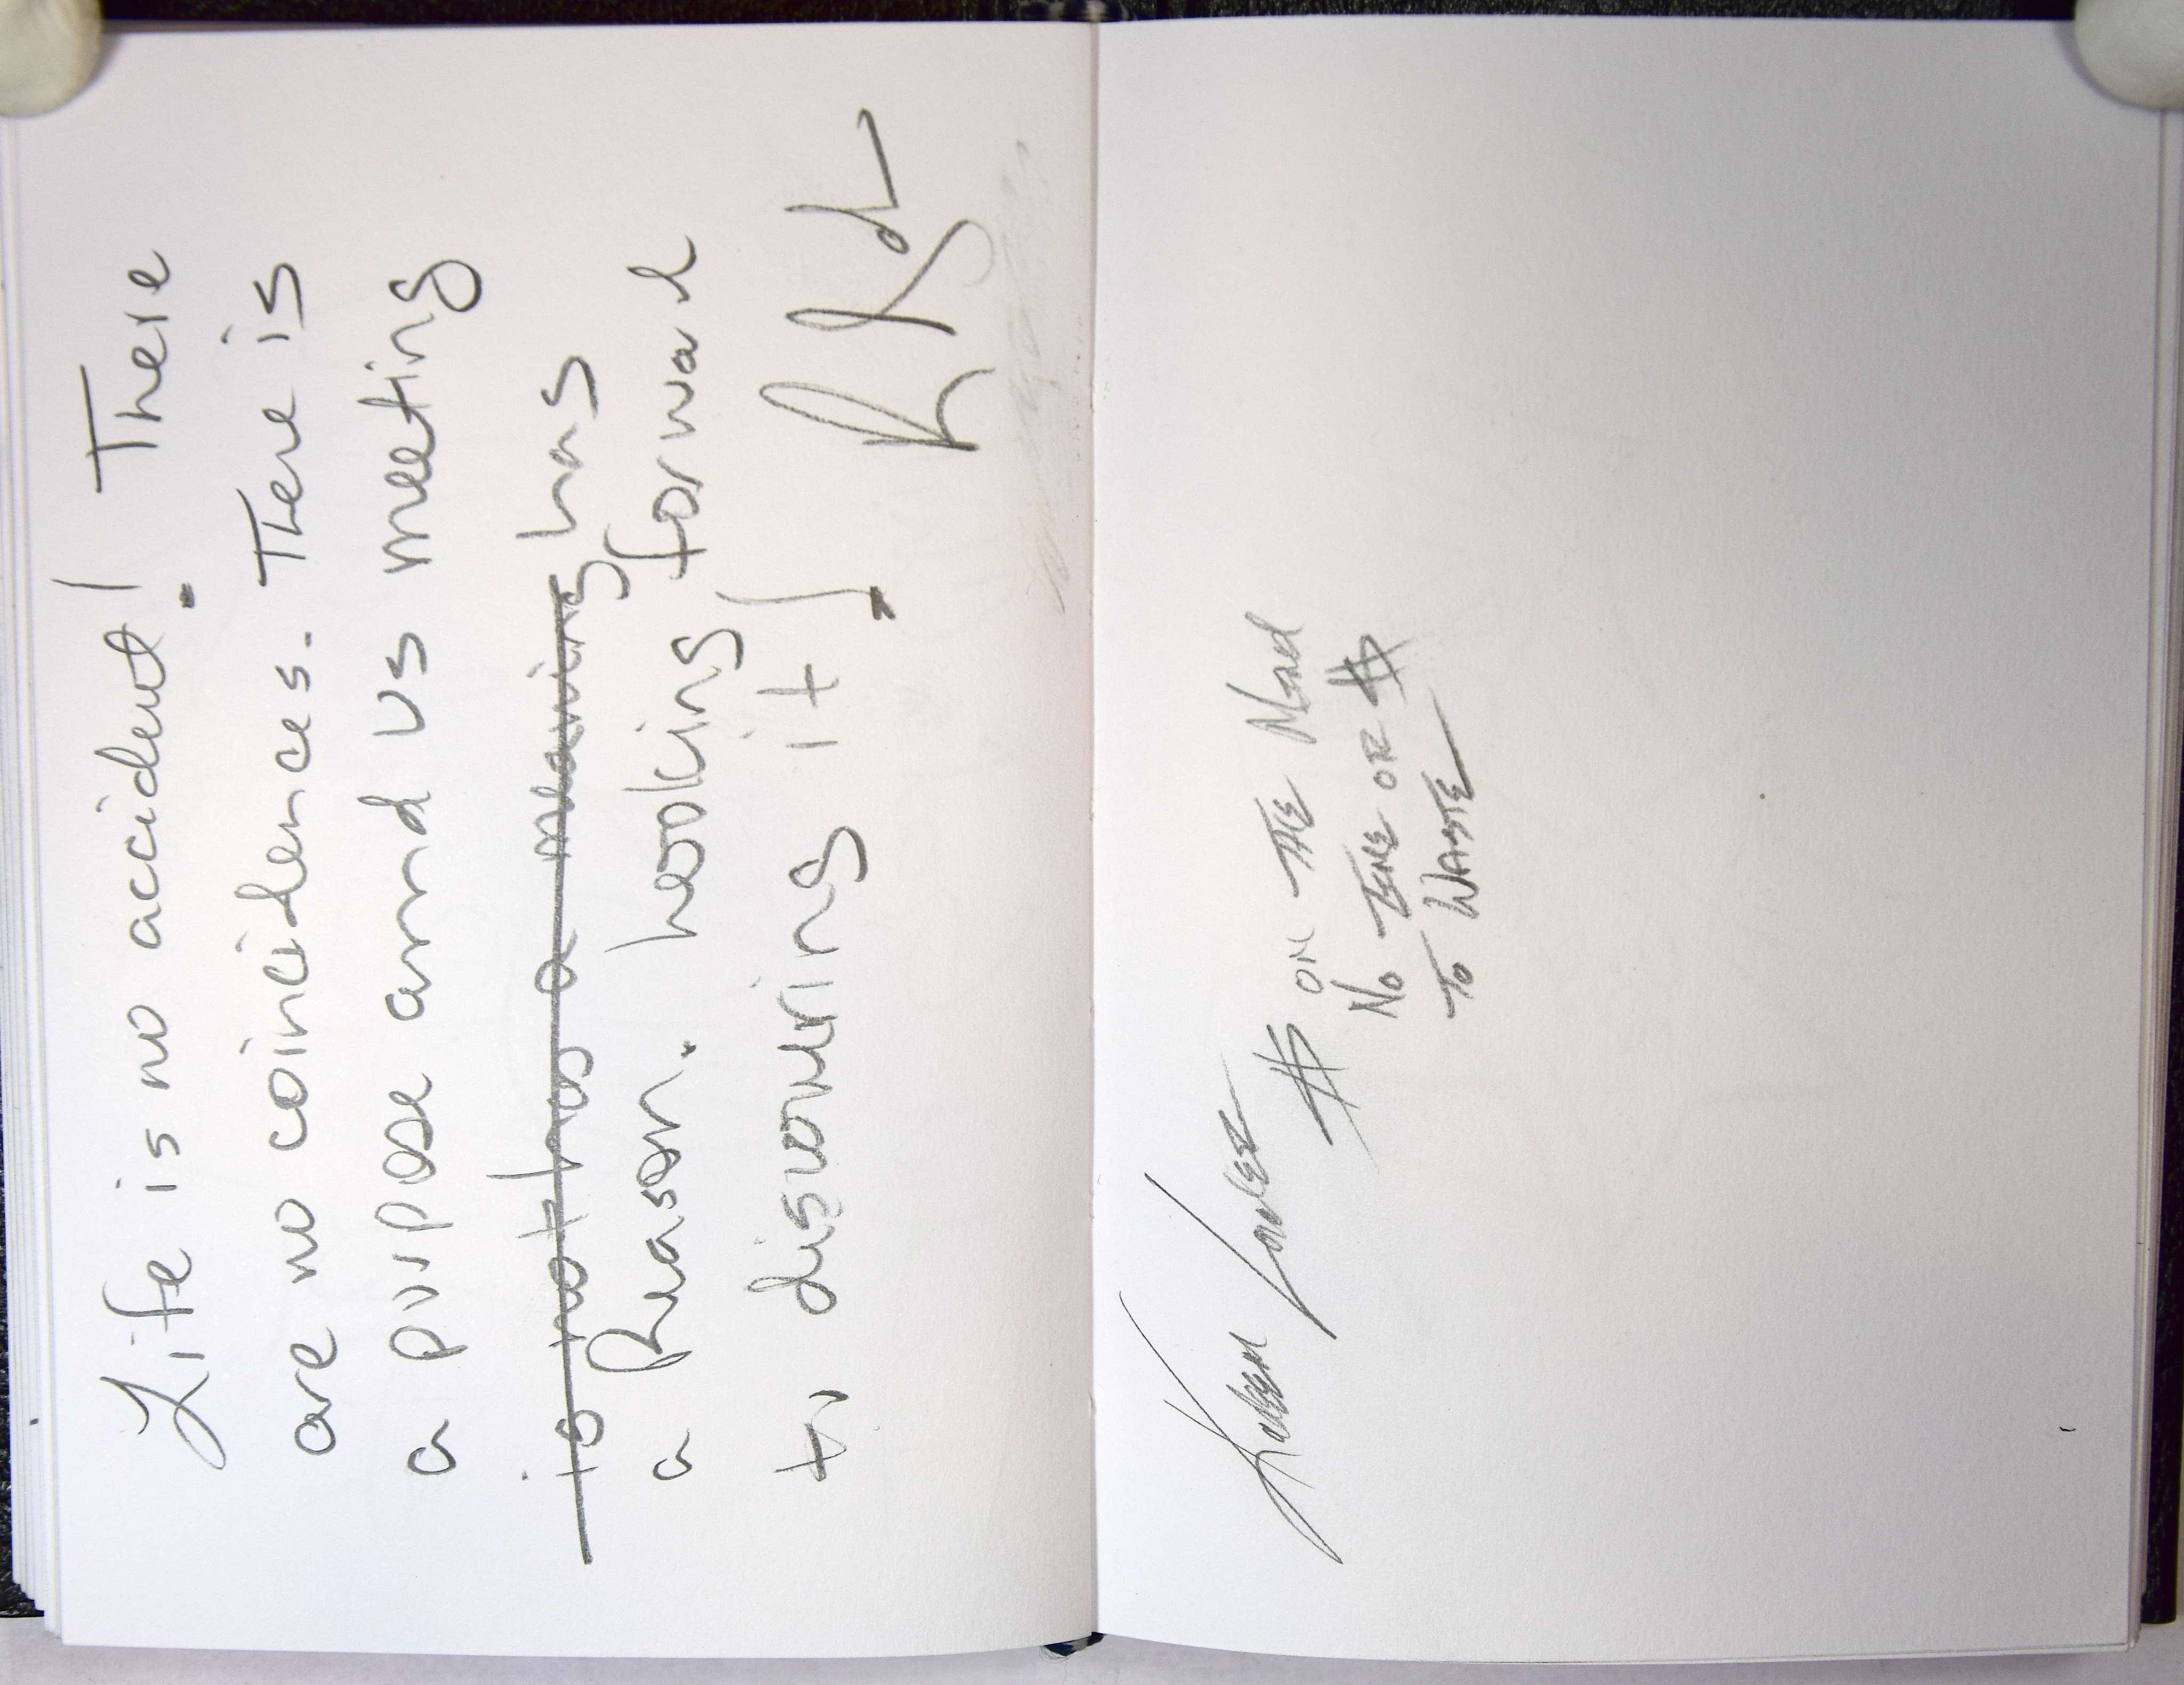 Life is no accident! There
are no coincidences. There is
a purpose amnd us meeting
is not has a meaning has
a Reason. Looking forward
to discovering it!
$ ON THE MIND
NO TIME OR $
TO WASTE